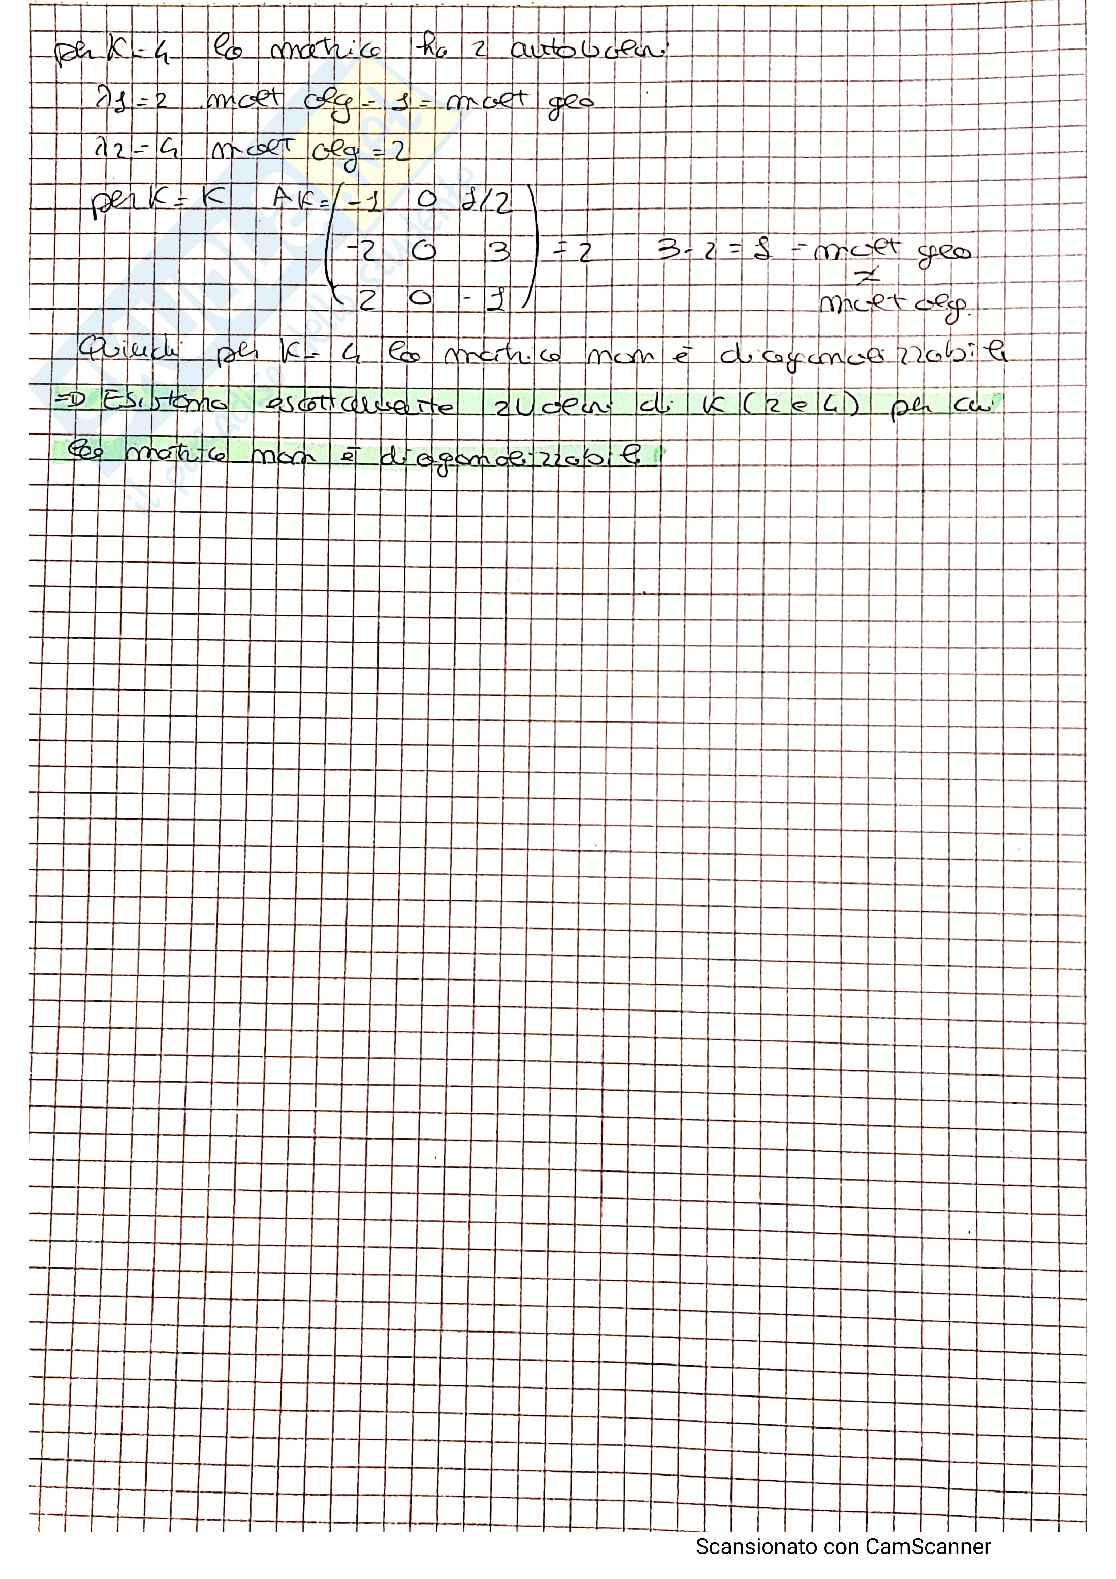 per K=4 la matrice ha 2 autovalori
λ1=2 molt alg = 1 = molt geo
λ2=4 molt alg = 2
per K=K AK= (-1 0 1/2
-2 0 3) = 2 3-2=1 = molt geo
≠
2 0 -1 molt alg.
Quindi per K=4 la matrice non è diagonalizzabile
=D Esistono esattamente 2 valori di K (2 e 4) per cui
la matrice non è diagonalizzabile
Scansionato con CamScanner